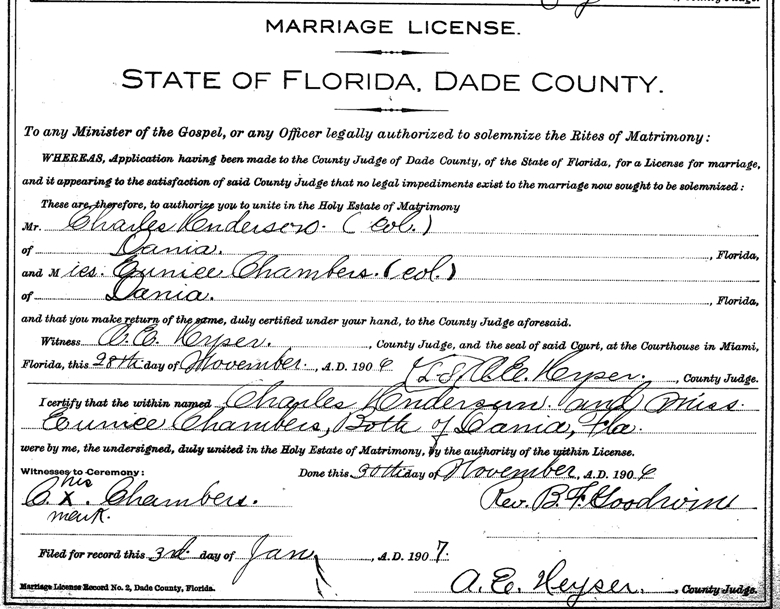 County Judge.
MARRIAGE LICENSE.
STATE OF FLORIDA, DADE COUNTY.
To any Minister of the Gospel, or any Officer legally authorized to solemnize the Rites of Matrimony:
WHEREAS, Application having been made to the County Judge of Dade County, of the State of Florida, for a License for marriage,
and it appearing to the satisfaction of said County Judge that no legal impediments exist to the marriage now sought to be solemnized:
These are, therefore, to authorize you to unite in the Holy Estate of Matrimony
Mr. Charles Anderson. (col.)
of Dania. , Florida,
and M iss. Eunice Chambers. (col.)
of Dania. , Florida,
and that you make return of the same, duly certified under your hand, to the County Judge aforesaid.
Witness A. E. Heyser. , County Judge, and the seal of said Court, at the Courthouse in Miami,
Florida, this 28th day of November. , A.D. 190 6 (L.S.) A.E. Heyser. , County Judge.
I certify that the within named Charles Anderson and Miss
Eunice Chambers, Both of Dania, Fla.
were by me, the undersigned, duly united in the Holy Estate of Matrimony, by the authority of the within License.
Witnesses to Ceremony: Done this 30th day of November , A.D. 190 6
his
C. x. Chambers. Rev. B. F. Goodwine
mark.
Filed for record this 3rd day of Jan , A.D. 190 7.
Marriage License Record No. 2, Dade County, Florida. A. E. Heyser. , County Judge.